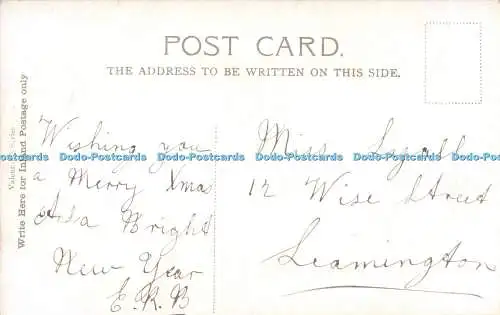 POST CARD.
THE ADDRESS TO BE WRITTEN ON THIS SIDE.
Write Here for Inland Postage only
Wishing you
a Merry Xmas
& a Bright
New Year
E.R.B
Miss Lyell
12 Wise Street
Leamington
Dodo-Postcards Dodo-Postcards Dodo-Postcards Dodo-Postcards Dodo-Postcards